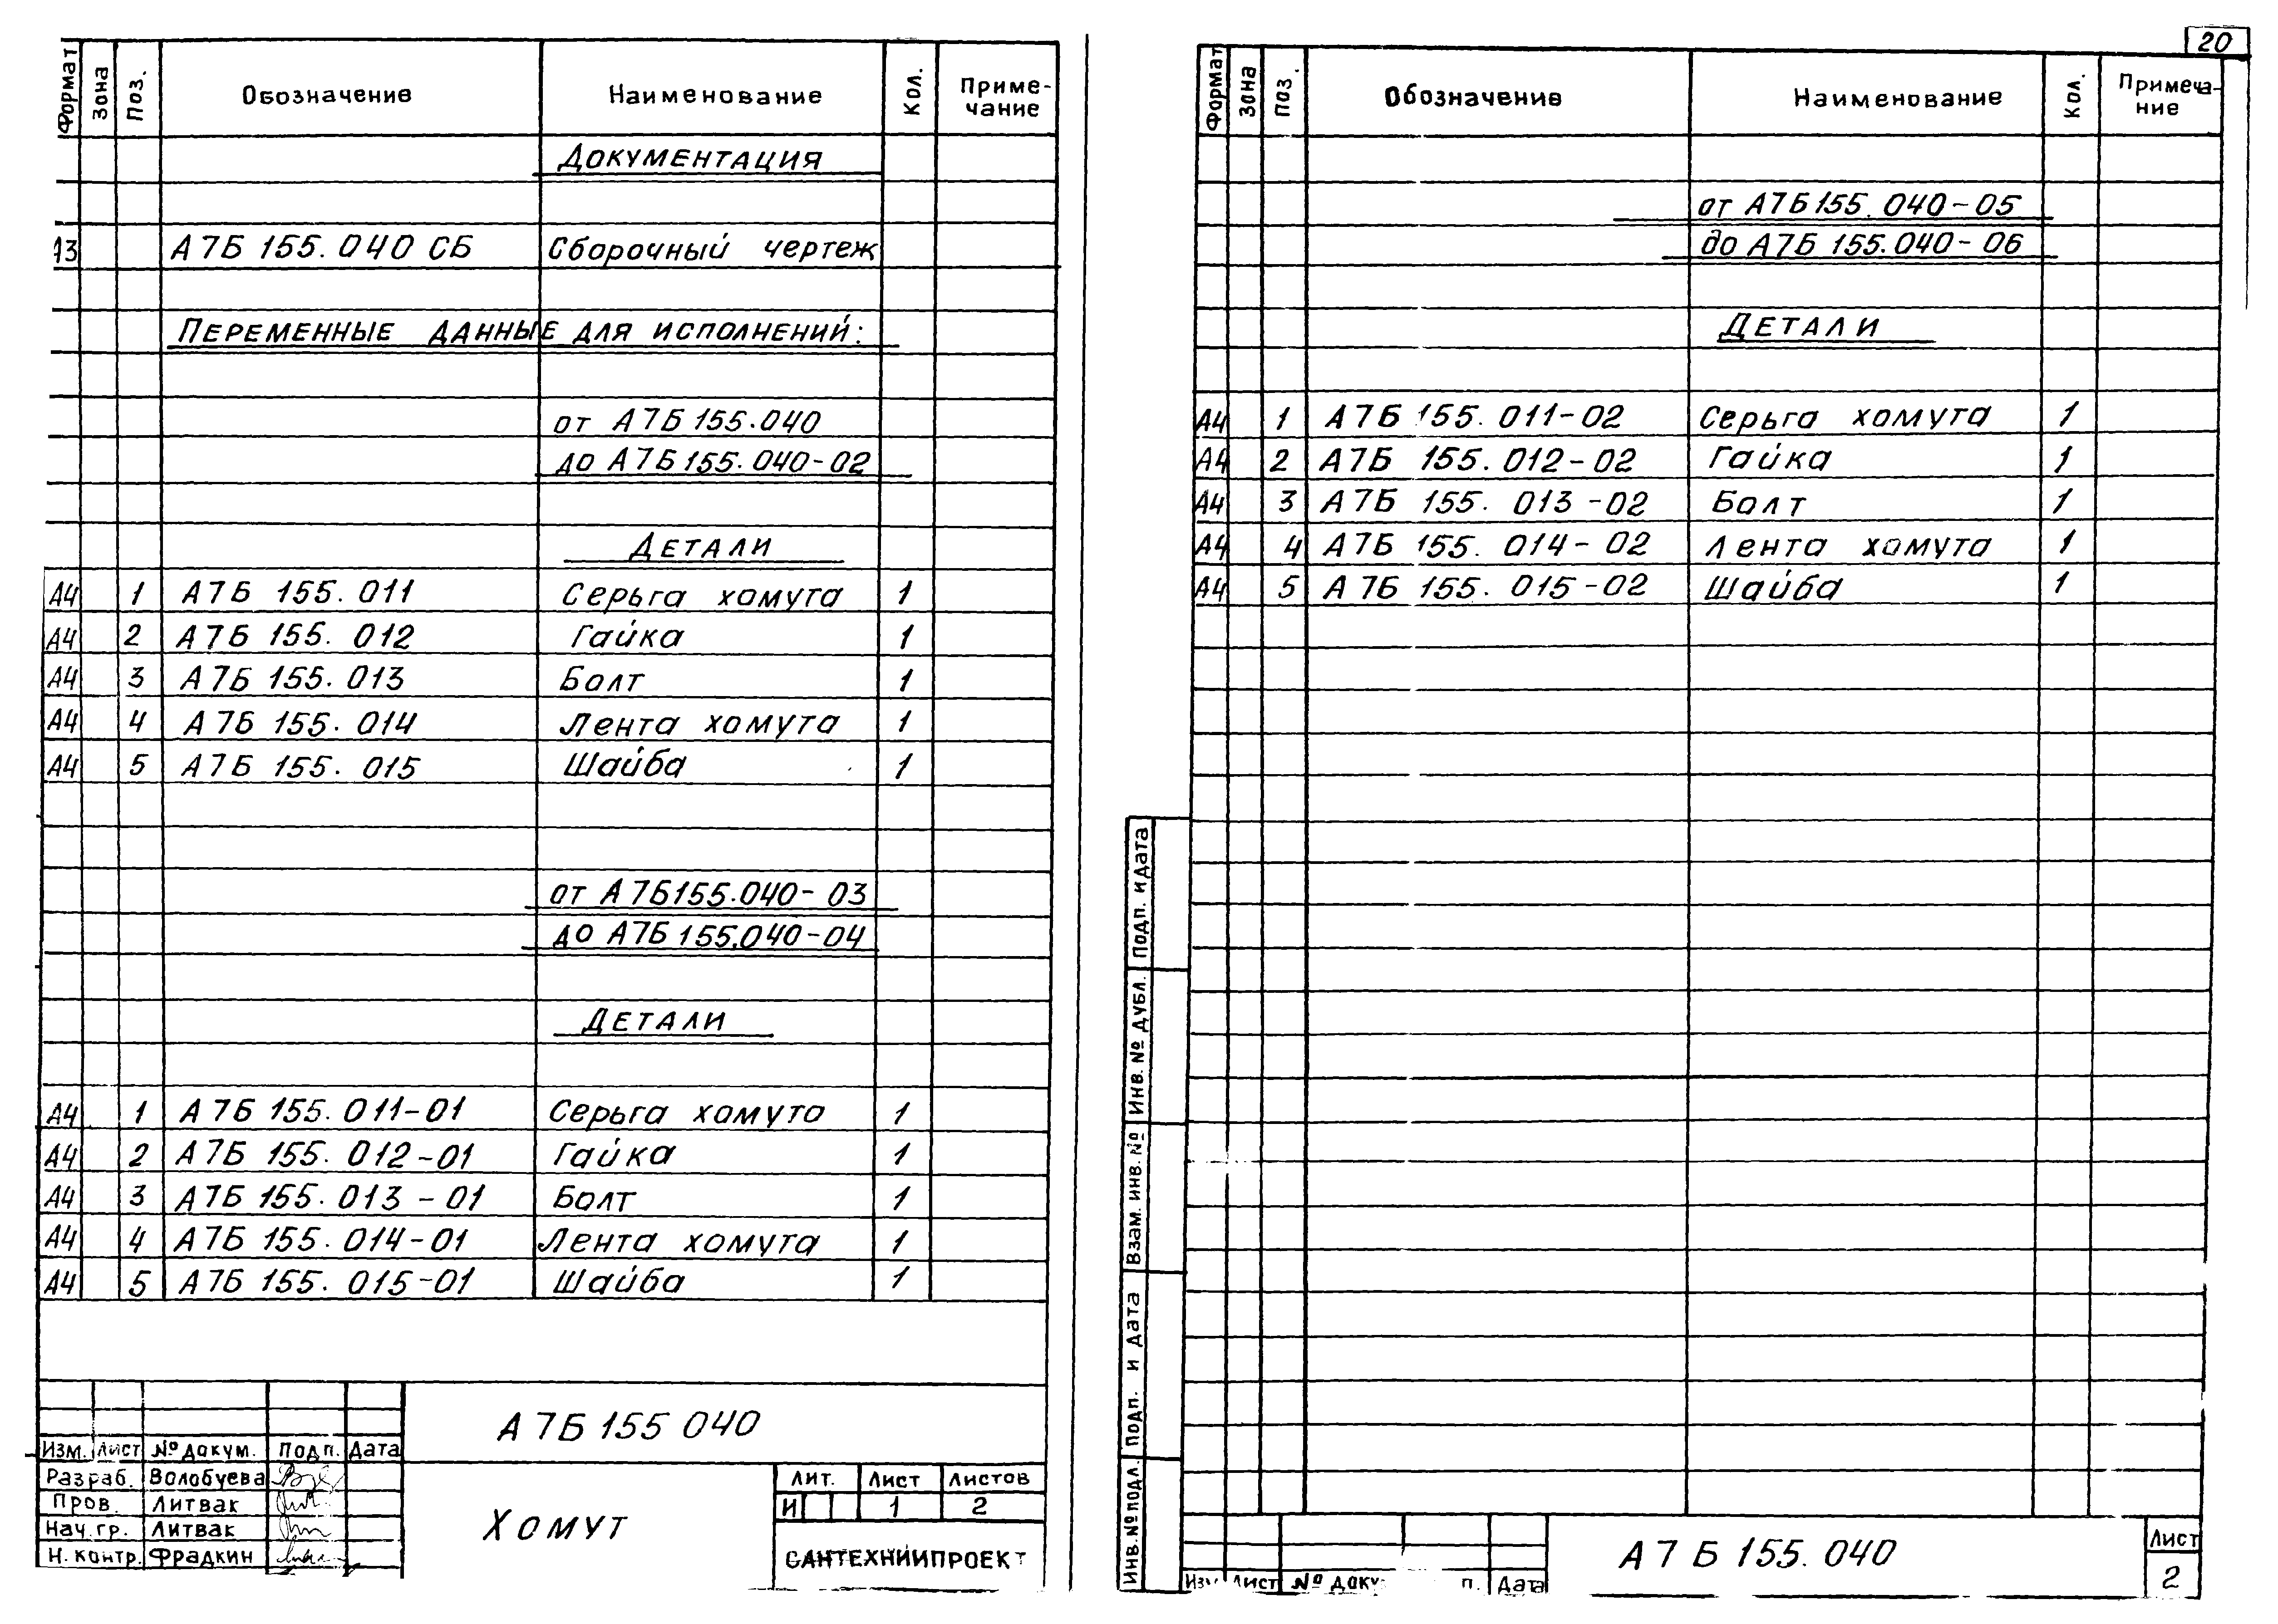 Формат Зона Поз. Обозначение Наименование Кол. Приме-чание
Документация
А3 А7Б 155.040 СБ Сборочный чертеж
Переменные данные для исполнений:
от А7Б155.040
до А7Б155.040-02
Детали
А4 1 А7Б 155.011 Серьга хомута 1
А4 2 А7Б 155.012 Гайка 1
А4 3 А7Б 155.013 Болт 1
А4 4 А7Б 155.014 Лента хомута 1
А4 5 А7Б 155.015 Шайба 1
от А7Б155.040-03
до А7Б155.040-04
Детали
А4 1 А7Б 155.011-01 Серьга хомута 1
А4 2 А7Б 155.012-01 Гайка 1
А4 3 А7Б 155.013-01 Болт 1
А4 4 А7Б 155.014-01 Лента хомута 1
А4 5 А7Б 155.015-01 Шайба 1
А7Б 155 040
Изм. Лист № докум. Подп. Дата
Разраб. Волобуева
Пров. Литвак
Нач. гр. Литвак
Н. контр. Фрадкин
Хомут
Лит. Лист Листов
И 1 2
САНТЕХНИИПРОЕКТ
20
Формат Зона Поз. Обозначение Наименование Кол. Примеча-ние
от А7Б155.040-05
до А7Б 155.040-06
Детали
А4 1 А7Б 155.011-02 Серьга хомута 1
А4 2 А7Б 155.012-02 Гайка 1
А4 3 А7Б 155.013-02 Болт 1
А4 4 А7Б 155.014-02 Лента хомута 1
А4 5 А7Б 155.015-02 Шайба 1
Инв. № подл. Подп. и дата Взам. инв. № Инв. № дубл. Подп. и дата
Изм Лист № доку п. Дата
А7Б 155.040
Лист
2